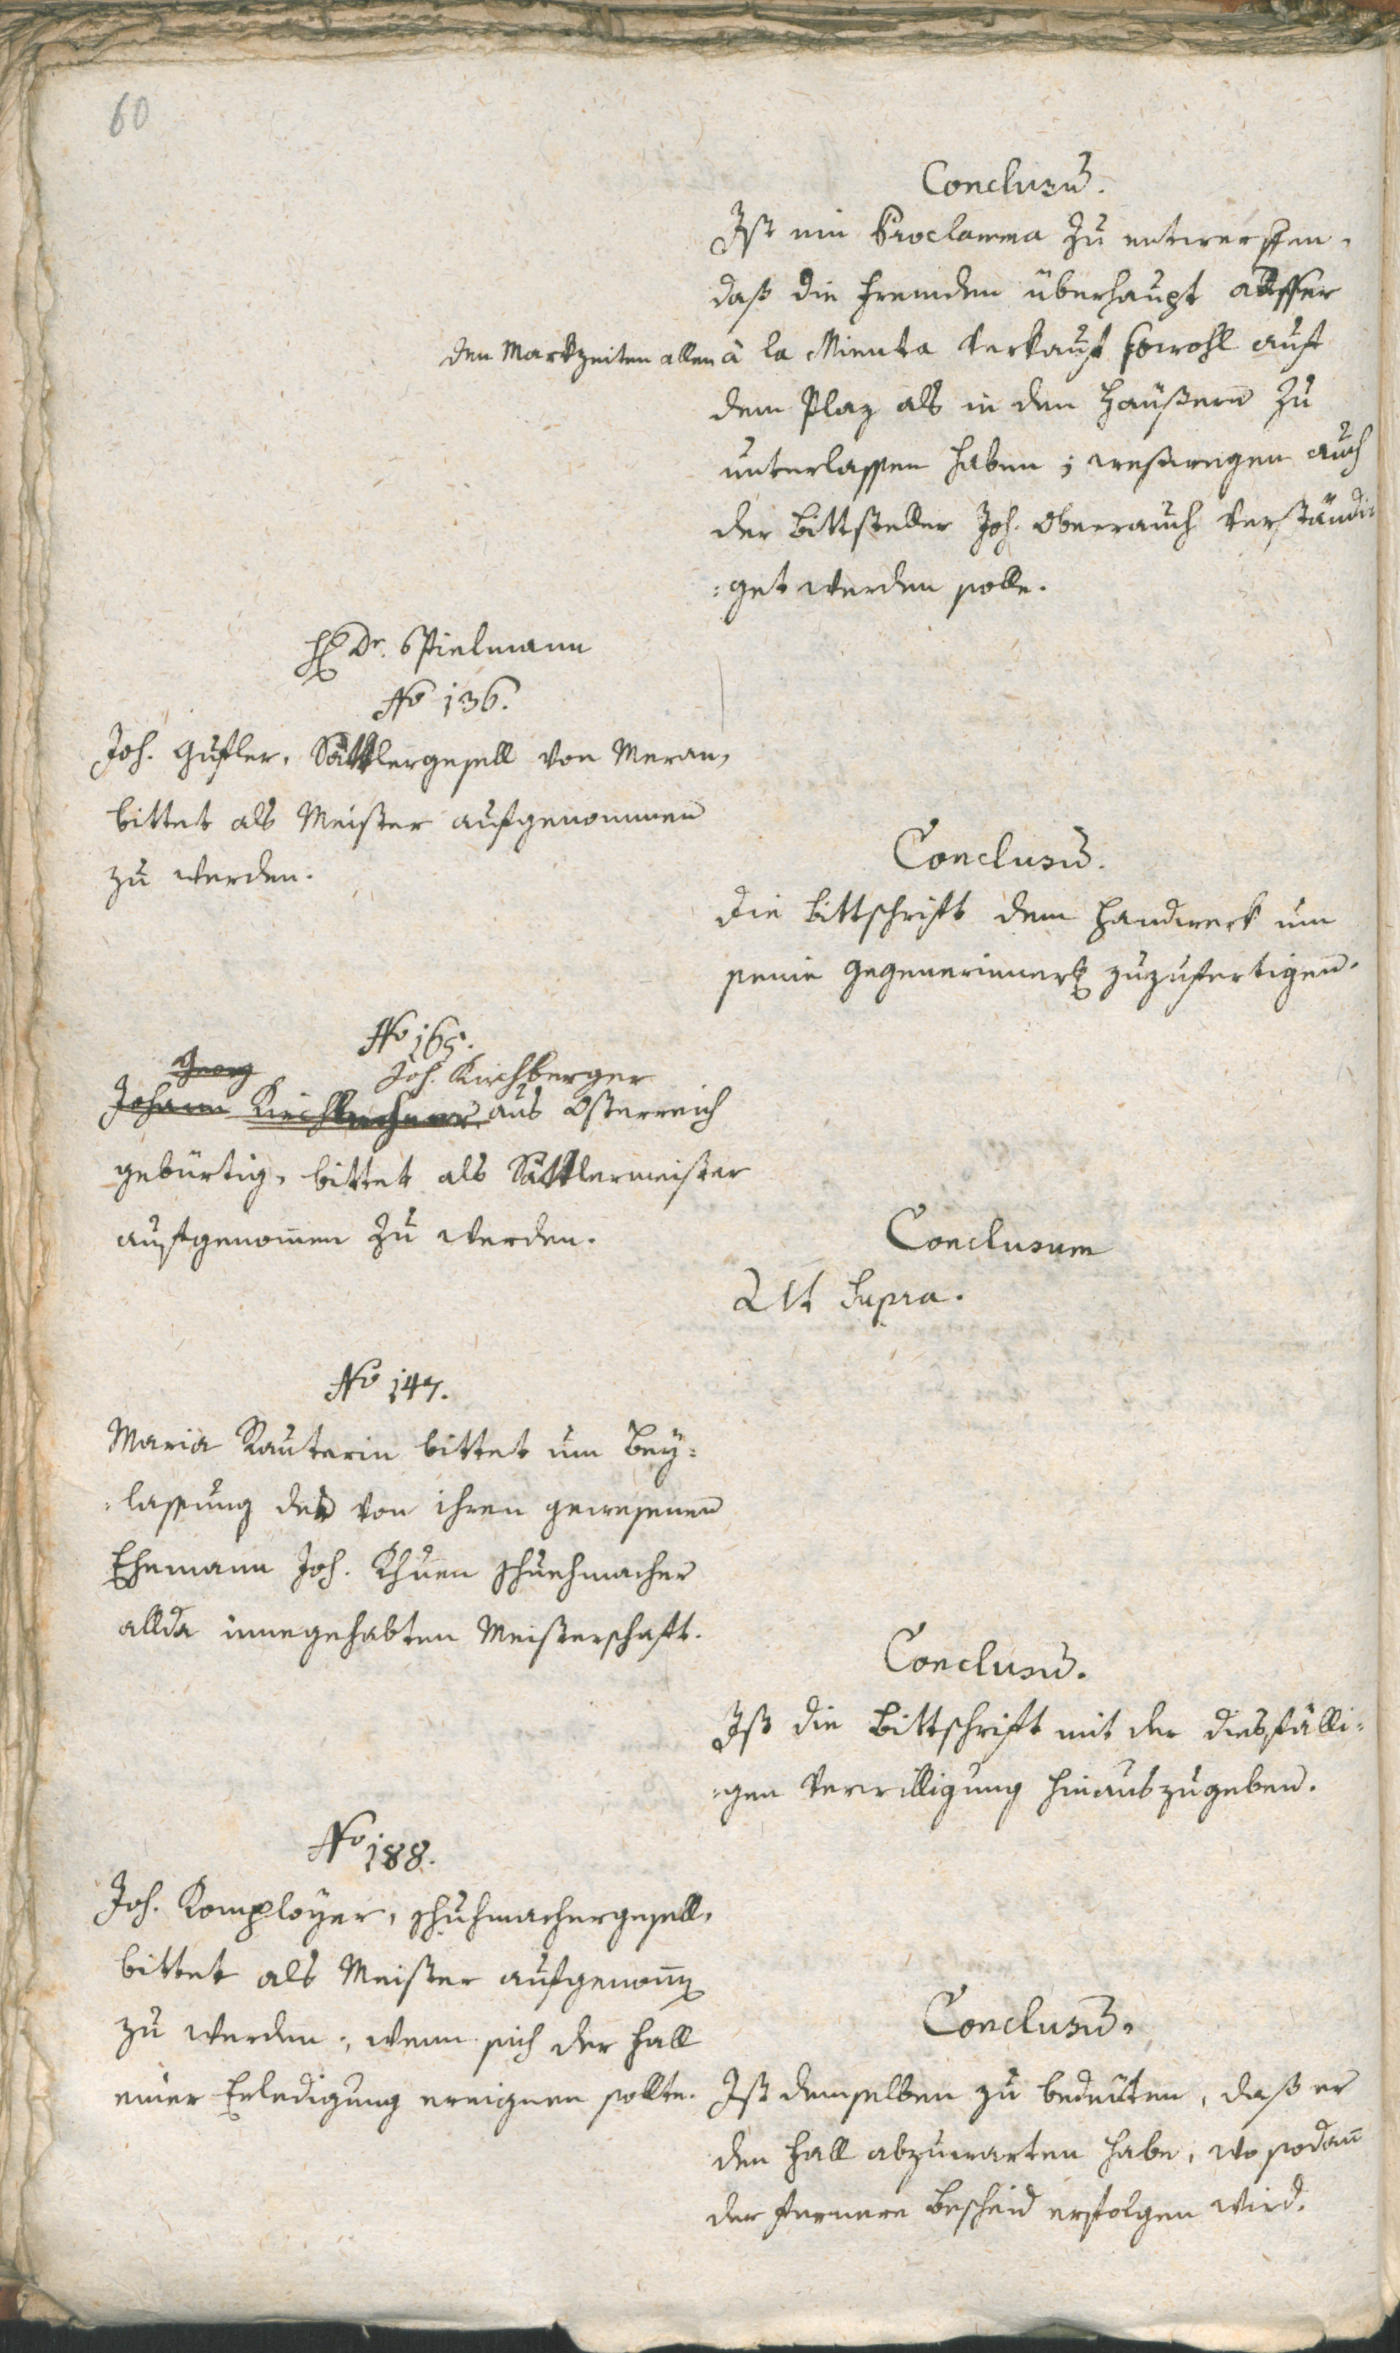 60
Conclusum̅.
Ist ein Proclamma zu entwerffen,
daß die Fremden überhaupt ausser
den Marktzeiten allen à la Minuta Verkauf sowohl auf
dem Plaz als in den Häußern zu
unterlassen haben; wesswegen auch
der Bittsteller Joh. Oberrauch verständi-
=get werden solle.
H Dr. Spielmann
No 136.
Joh. Gufler, Sattlergesell von Meran,
bittet als Meister aufgenommen
zu werden.
Conclusum̅.
Die Bittschrift dem Handwerk um
seine Gegenerinner͠g zuzufertigen.
No 165.
Georg Joh. Kirchberger
Johann Kirchlechner aus Österreich
gebürtig, bittet als Sattlermeister
aufgenom̅en zu werden.
Conclusum
Ut Supra.
No 147.
Maria Rauterin bittet um Bey=
=lassung der von ihren gewesenen
Ehemann Joh. Khuen Schuehmacher
allda innegehabten Meisterschaft.
Conclusum̅.
Ist die Bittschrift mit der diesfälli=
=gen Verwilligung hinauszugeben.
No 188.
Joh. Komployer, Schuhmachergesell,
bittet als Meister aufgenom̅
zu werden, wenn sich der Fall
einer Erledigung ereignen sollte.
Conclusum̅.
Ist demselben zu bedeuten, daß er
den Fall abzuwarten habe, wo sodan̅
der fernere Bescheid erfolgen wird.